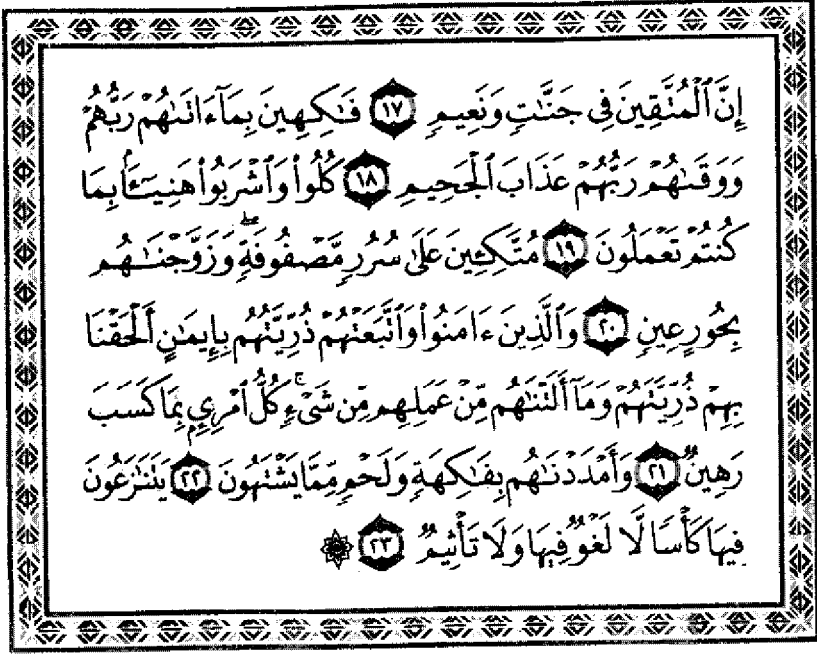 إِنَّ ٱلْمُتَّقِينَ فِى جَنَّٰتٍ وَنَعِيمٍ ١٧ فَٰكِهِينَ بِمَآ ءَاتَىٰهُمْ رَبُّهُمْ
وَوَقَىٰهُمْ رَبُّهُمْ عَذَابَ ٱلْجَحِيمِ ١٨ كُلُوا۟ وَٱشْرَبُوا۟ هَنِيٓـًٔۢا بِمَا
كُنتُمْ تَعْمَلُونَ ١٩ مُتَّكِـِٔينَ عَلَىٰ سُرُرٍ مَّصْفُوفَةٍ ۖ وَزَوَّجْنَٰهُم
بِحُورٍ عِينٍ ٢٠ وَٱلَّذِينَ ءَامَنُوا۟ وَٱتَّبَعَتْهُمْ ذُرِّيَّتُهُم بِإِيمَٰنٍ أَلْحَقْنَا
بِهِمْ ذُرِّيَّتَهُمْ وَمَآ أَلَتْنَٰهُم مِّنْ عَمَلِهِم مِّن شَىْءٍ ۚ كُلُّ ٱمْرِئٍۭ بِمَا كَسَبَ
رَهِينٌ ٢١ وَأَمْدَدْنَٰهُم بِفَٰكِهَةٍ وَلَحْمٍ مِّمَّا يَشْتَهُونَ ٢٢ يَتَنَٰزَعُونَ
فِيهَا كَأْسًا لَّا لَغْوٌ فِيهَا وَلَا تَأْثِيمٌ ٢٣